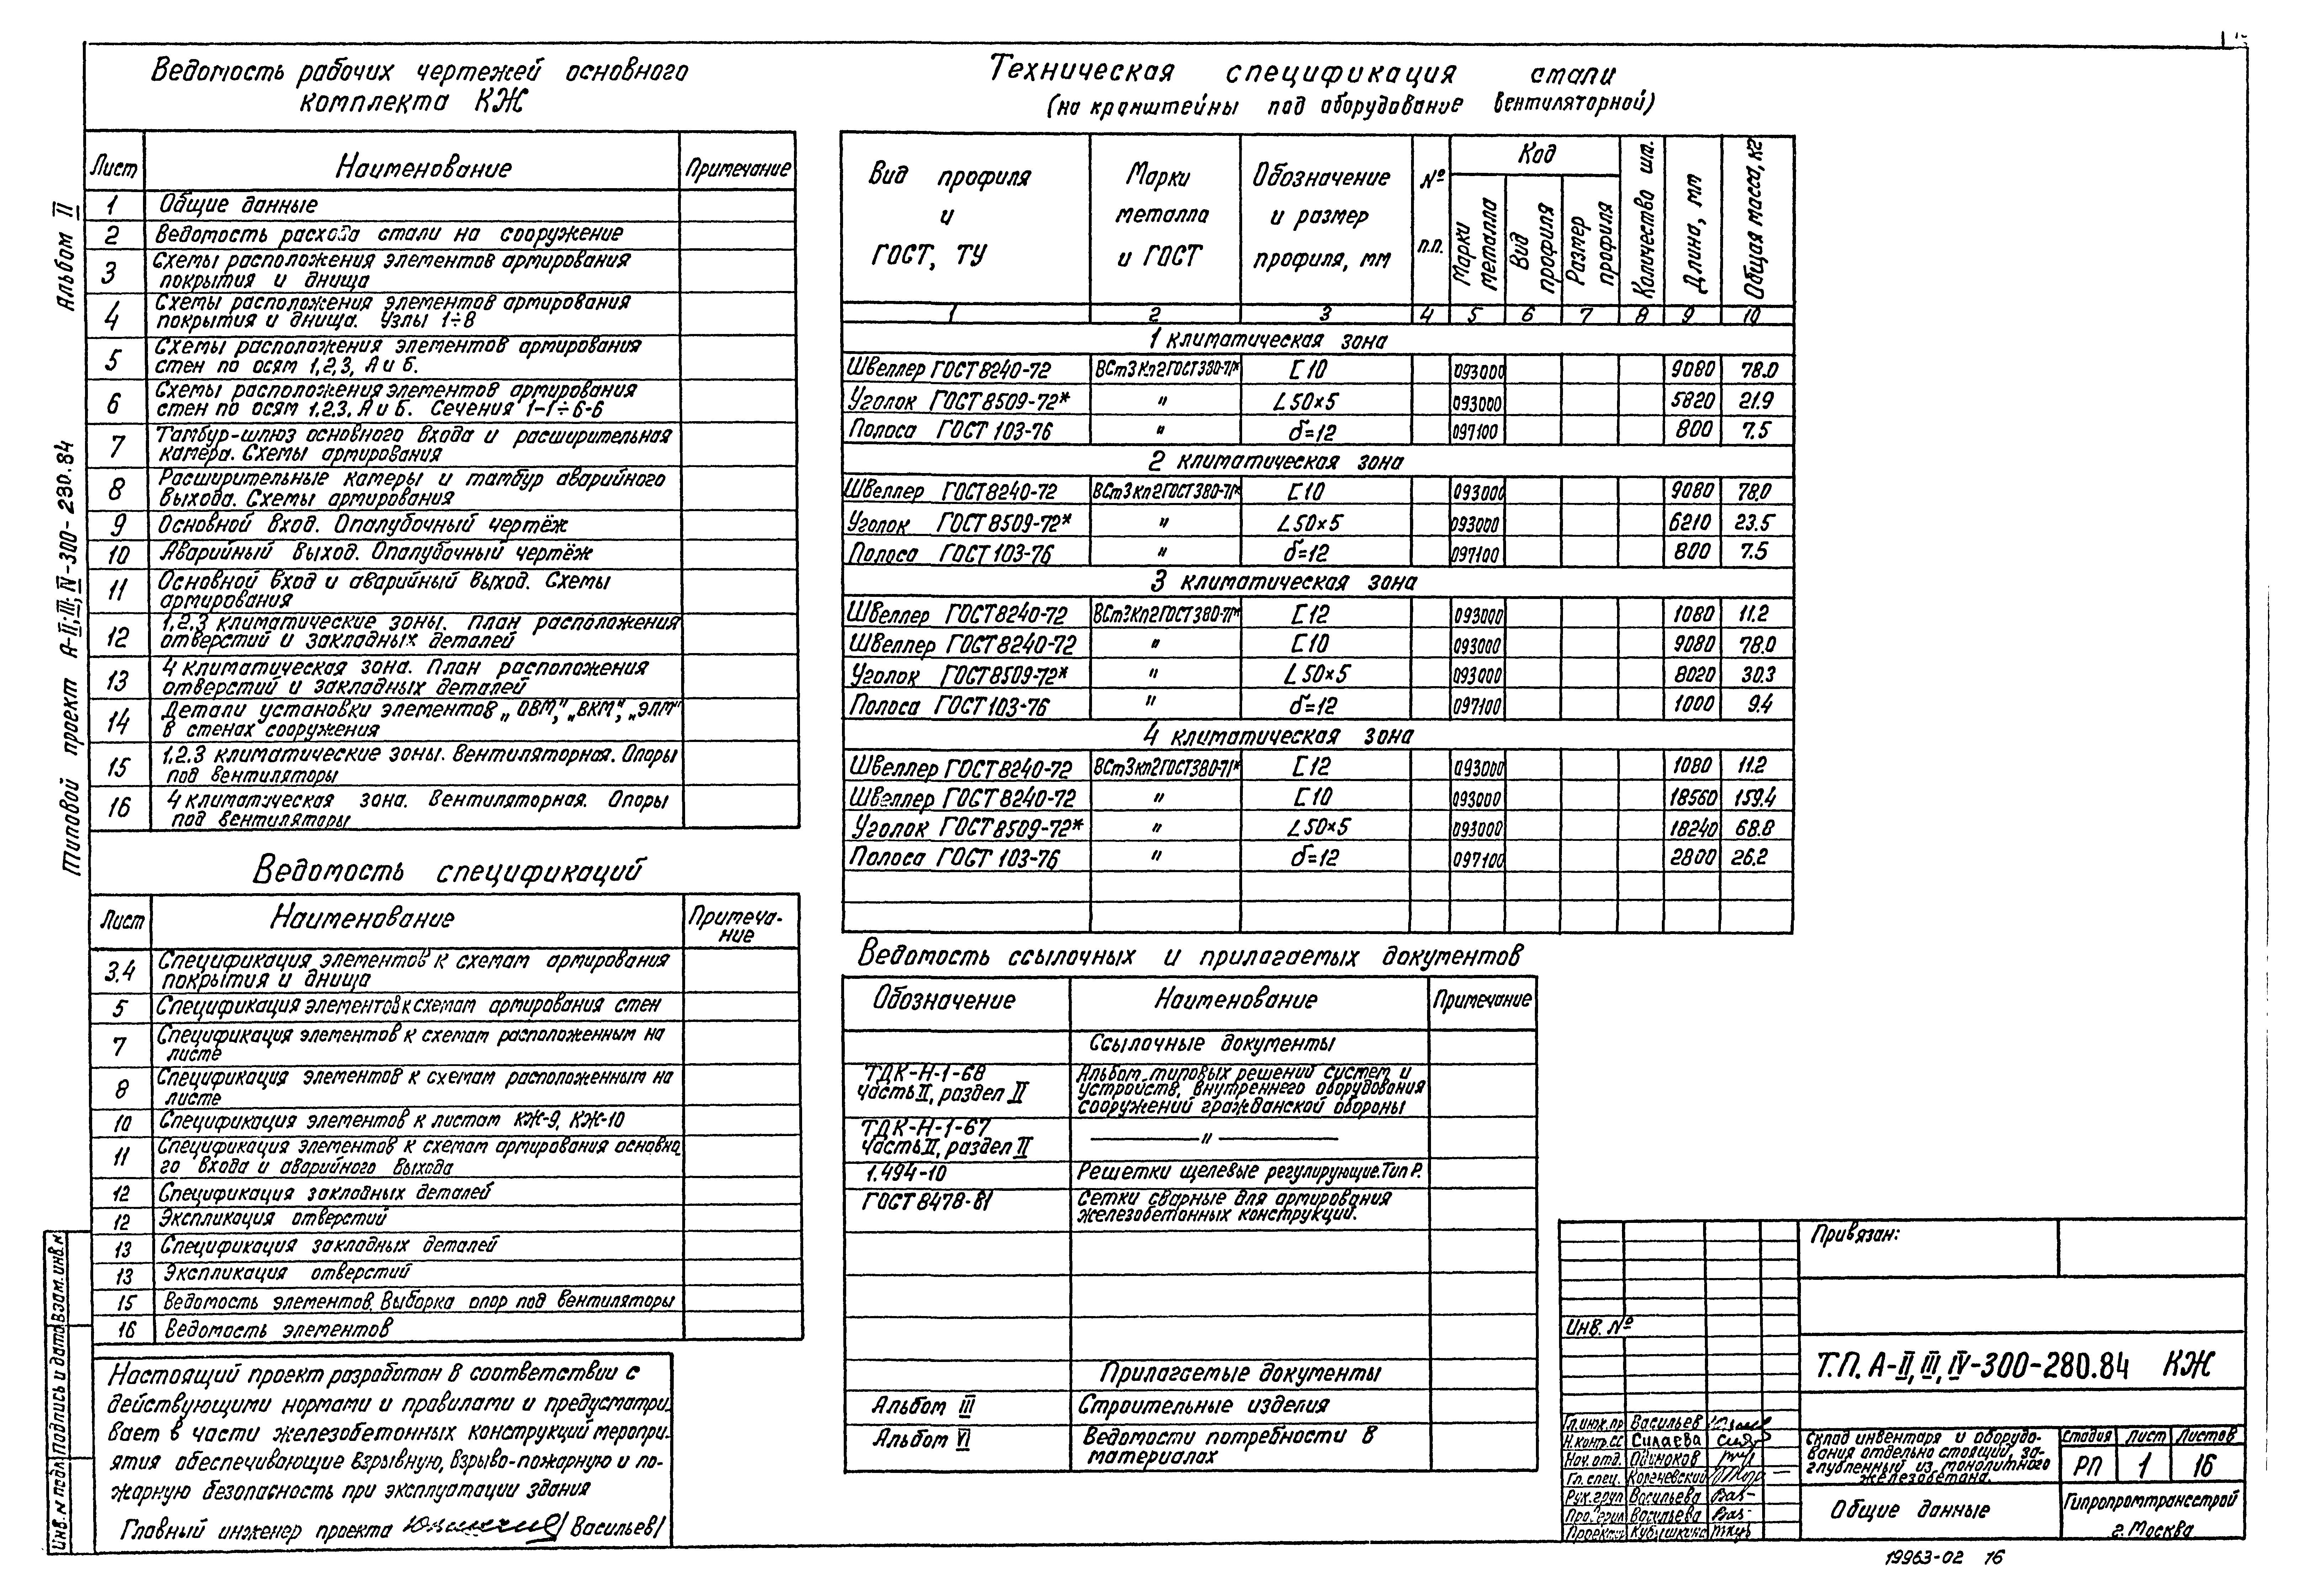 Альбом II
Типовой проект А-II;III;IV-300-230.84
Ведомость рабочих чертежей основного
комплекта КЖ
Лист Наименование Примечание
1 Общие данные
2 Ведомость расхода стали на сооружение
3 Схемы расположения элементов армирования
покрытия и днища
4 Схемы расположения элементов армирования
покрытия и днища. Узлы 1÷8
5 Схемы расположения элементов армирования
стен по осям 1,2,3, А и Б.
6 Схемы расположения элементов армирования
стен по осям 1.2.3, А и Б. Сечения 1-1÷6-6
7 Тамбур-шлюз основного входа и расширительная
камера. Схемы армирования
8 Расширительные камеры и тамбур аварийного
выхода. Схемы армирования
9 Основной вход. Опалубочный чертёж
10 Аварийный выход. Опалубочный чертёж
11 Основной вход и аварийный выход. Схемы
армирования
12 1,2.3 климатические зоны. План расположения
отверстий и закладных деталей
13 4 климатическая зона. План расположения
отверстий и закладных деталей
14 Детали установки элементов „ОВМ", „ВКМ", „ЭЛМ"
в стенах сооружения
15 1.2.3 климатические зоны. Вентиляторная. Опоры
под вентиляторы
16 4 климатическая зона. Вентиляторная. Опоры
под вентиляторы
Ведомость спецификаций
Лист Наименование Примеча-
ние
3.4 Спецификация элементов к схемам армирования
покрытия и днища
5 Спецификация элементов к схемам армирования стен
7 Спецификация элементов к схемам расположенным на
листе
8 Спецификация элементов к схемам расположенным на
листе
10 Спецификация элементов к листам КЖ-9, КЖ-10
11 Спецификация элементов к схемам армирования основно
го входа и аварийного выхода
12 Спецификация закладных деталей
12 Экспликация отверстий
13 Спецификация закладных деталей
13 Экспликация отверстий
15 Ведомость элементов. Выборка опор под вентиляторы
16 Ведомость элементов
Настоящий проект разработан в соответствии с
действующими нормами и правилами и предусматри
вает в части железобетонных конструкций меропри-
ятия обеспечивающие взрывную, взрыво-пожарную и по-
жарную безопасность при эксплуатации здания
Главный инженер проекта /Васильев/
Инв.№ подл. Подпись и дата Взам.инв.№
Техническая спецификация стали
(на кронштейны под оборудование вентиляторной)
Вид профиля и ГОСТ, ТУ Марки металла и ГОСТ Обозначение и размер профиля, мм № п.п. Код Марки металла Вид профиля Размер профиля Количество шт. Длина, мм Общая масса, кг
1 2 3 4 5 6 7 8 9 10
1 климатическая зона
Швеллер ГОСТ 8240-72 ВСт3кп2ГОСТ380-71* [10 093000 9080 78.0
Уголок ГОСТ 8509-72* " L50×5 093000 5820 21.9
Полоса ГОСТ 103-76 " δ=12 097100 800 7.5
2 климатическая зона
Швеллер ГОСТ 8240-72 ВСт3кп2ГОСТ380-71* [10 093000 9080 78.0
Уголок ГОСТ 8509-72* " L50×5 093000 6210 23.5
Полоса ГОСТ 103-76 " δ=12 097100 800 7.5
3 климатическая зона
Швеллер ГОСТ 8240-72 ВСт3кп2ГОСТ380-71* [12 093000 1080 11.2
Швеллер ГОСТ 8240-72 " [10 093000 9080 78.0
Уголок ГОСТ 8509-72* " L50×5 093000 8020 30.3
Полоса ГОСТ 103-76 " δ=12 097100 1000 9.4
4 климатическая зона
Швеллер ГОСТ 8240-72 ВСт3кп2ГОСТ380-71* [12 093000 1080 11.2
Швеллер ГОСТ 8240-72 " [10 093000 18560 159.4
Уголок ГОСТ 8509-72* " L50×5 093000 18240 68.8
Полоса ГОСТ 103-76 " δ=12 097100 2800 26.2
Ведомость ссылочных и прилагаемых документов
Обозначение Наименование Примечание
Ссылочные документы
ТДК-Н-1-68 Альбом типовых решений систем и
часть II, раздел II устройств, внутреннего оборудования
сооружений гражданской обороны
ТДК-Н-1-67
часть II, раздел II — " —
1.494-10 Решетки щелевые регулирующие. Тип Р.
ГОСТ 8478-81 Сетки сварные для армирования
железобетонных конструкций.
Прилагаемые документы
Альбом III Строительные изделия
Альбом VI Ведомости потребности в
материалах
Привязан:
Инв. №
Т.П. А-II, III, IV-300-280.84 КЖ
Гл.инж.пр Васильев
Н.контр.СС Силаева
Нач. отд.
Гл. спец. Корачевский
Рук.груп Васильева
Васильева
Склад инвентаря и оборудо-
вания отдельно стоящий, за-
глубленный из монолитного
железобетона.
Стадия Лист Листов
РП 1 16
Общие данные
Гипропромтрансстрой
г. Москва
19963-02 16